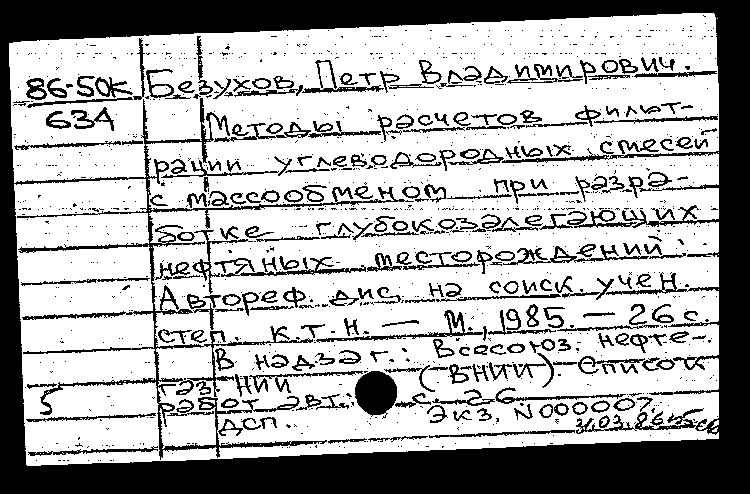 86-50к Безухов, Петр Владимирович.
634 Методы расчетов фильт-
рации углеводородных смесей
с массообменом при разра-
ботке глубокозалегающих
нефтяных месторождений:
Автореф. дис. на соиск. учен.
степ. к.т.н. — М., 1985. — 26 с.
В надзаг.: Всесоюз. нефте-
газ. НИИ (ВНИИ). Список
5 работ авт.: с. 26
ДСП. Экз. N 000007.
31.03.86